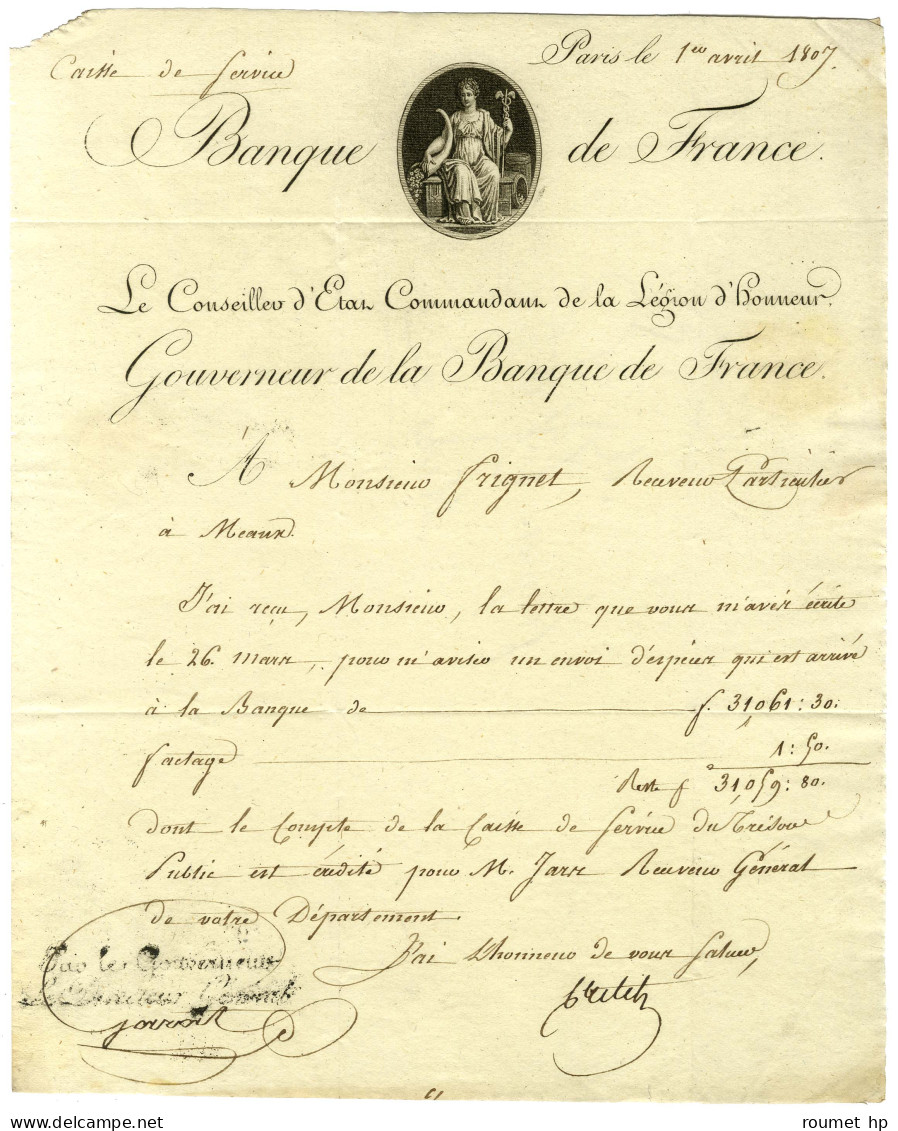 Caisse de Service
Paris le 1er avril 1807.
Banque de France.
Le Conseiller d'Etat Commandant de la Légion d'honneur,
Gouverneur de la Banque de France.
A Monsieur Frignet, Receveur Particulier
à Meaux.
J'ai reçu, Monsieur, la lettre que vous m'avés écrite
le 26. mars, pour m'aviser un envoi d'espèces qui est arrivé
à la Banque de f. 31,061:30.
factage 1:50.
Reste f 31,059:80.
dont le Compte de la Caisse de Service du Trésor
Public est crédité pour M. Jars Receveur Général
de votre Département.
J'ai l'honneur de vous saluer,
Par le Gouverneur
Le Directeur Général
roumet hp